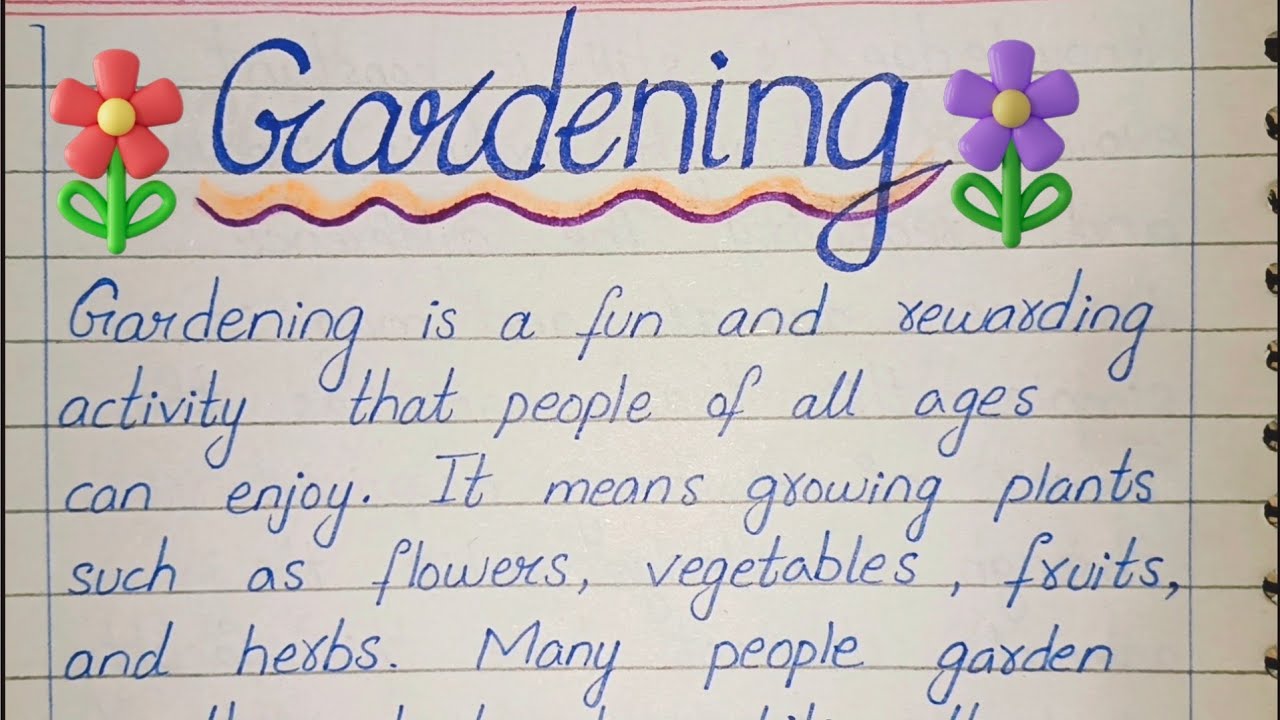 Gardening
Gardening is a fun and rewarding
activity that people of all ages
can enjoy. It means growing plants
such as flowers, vegetables, fruits,
and herbs. Many people garden